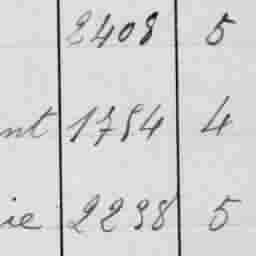 2408 5
nt 1754 4
ie 2298 5